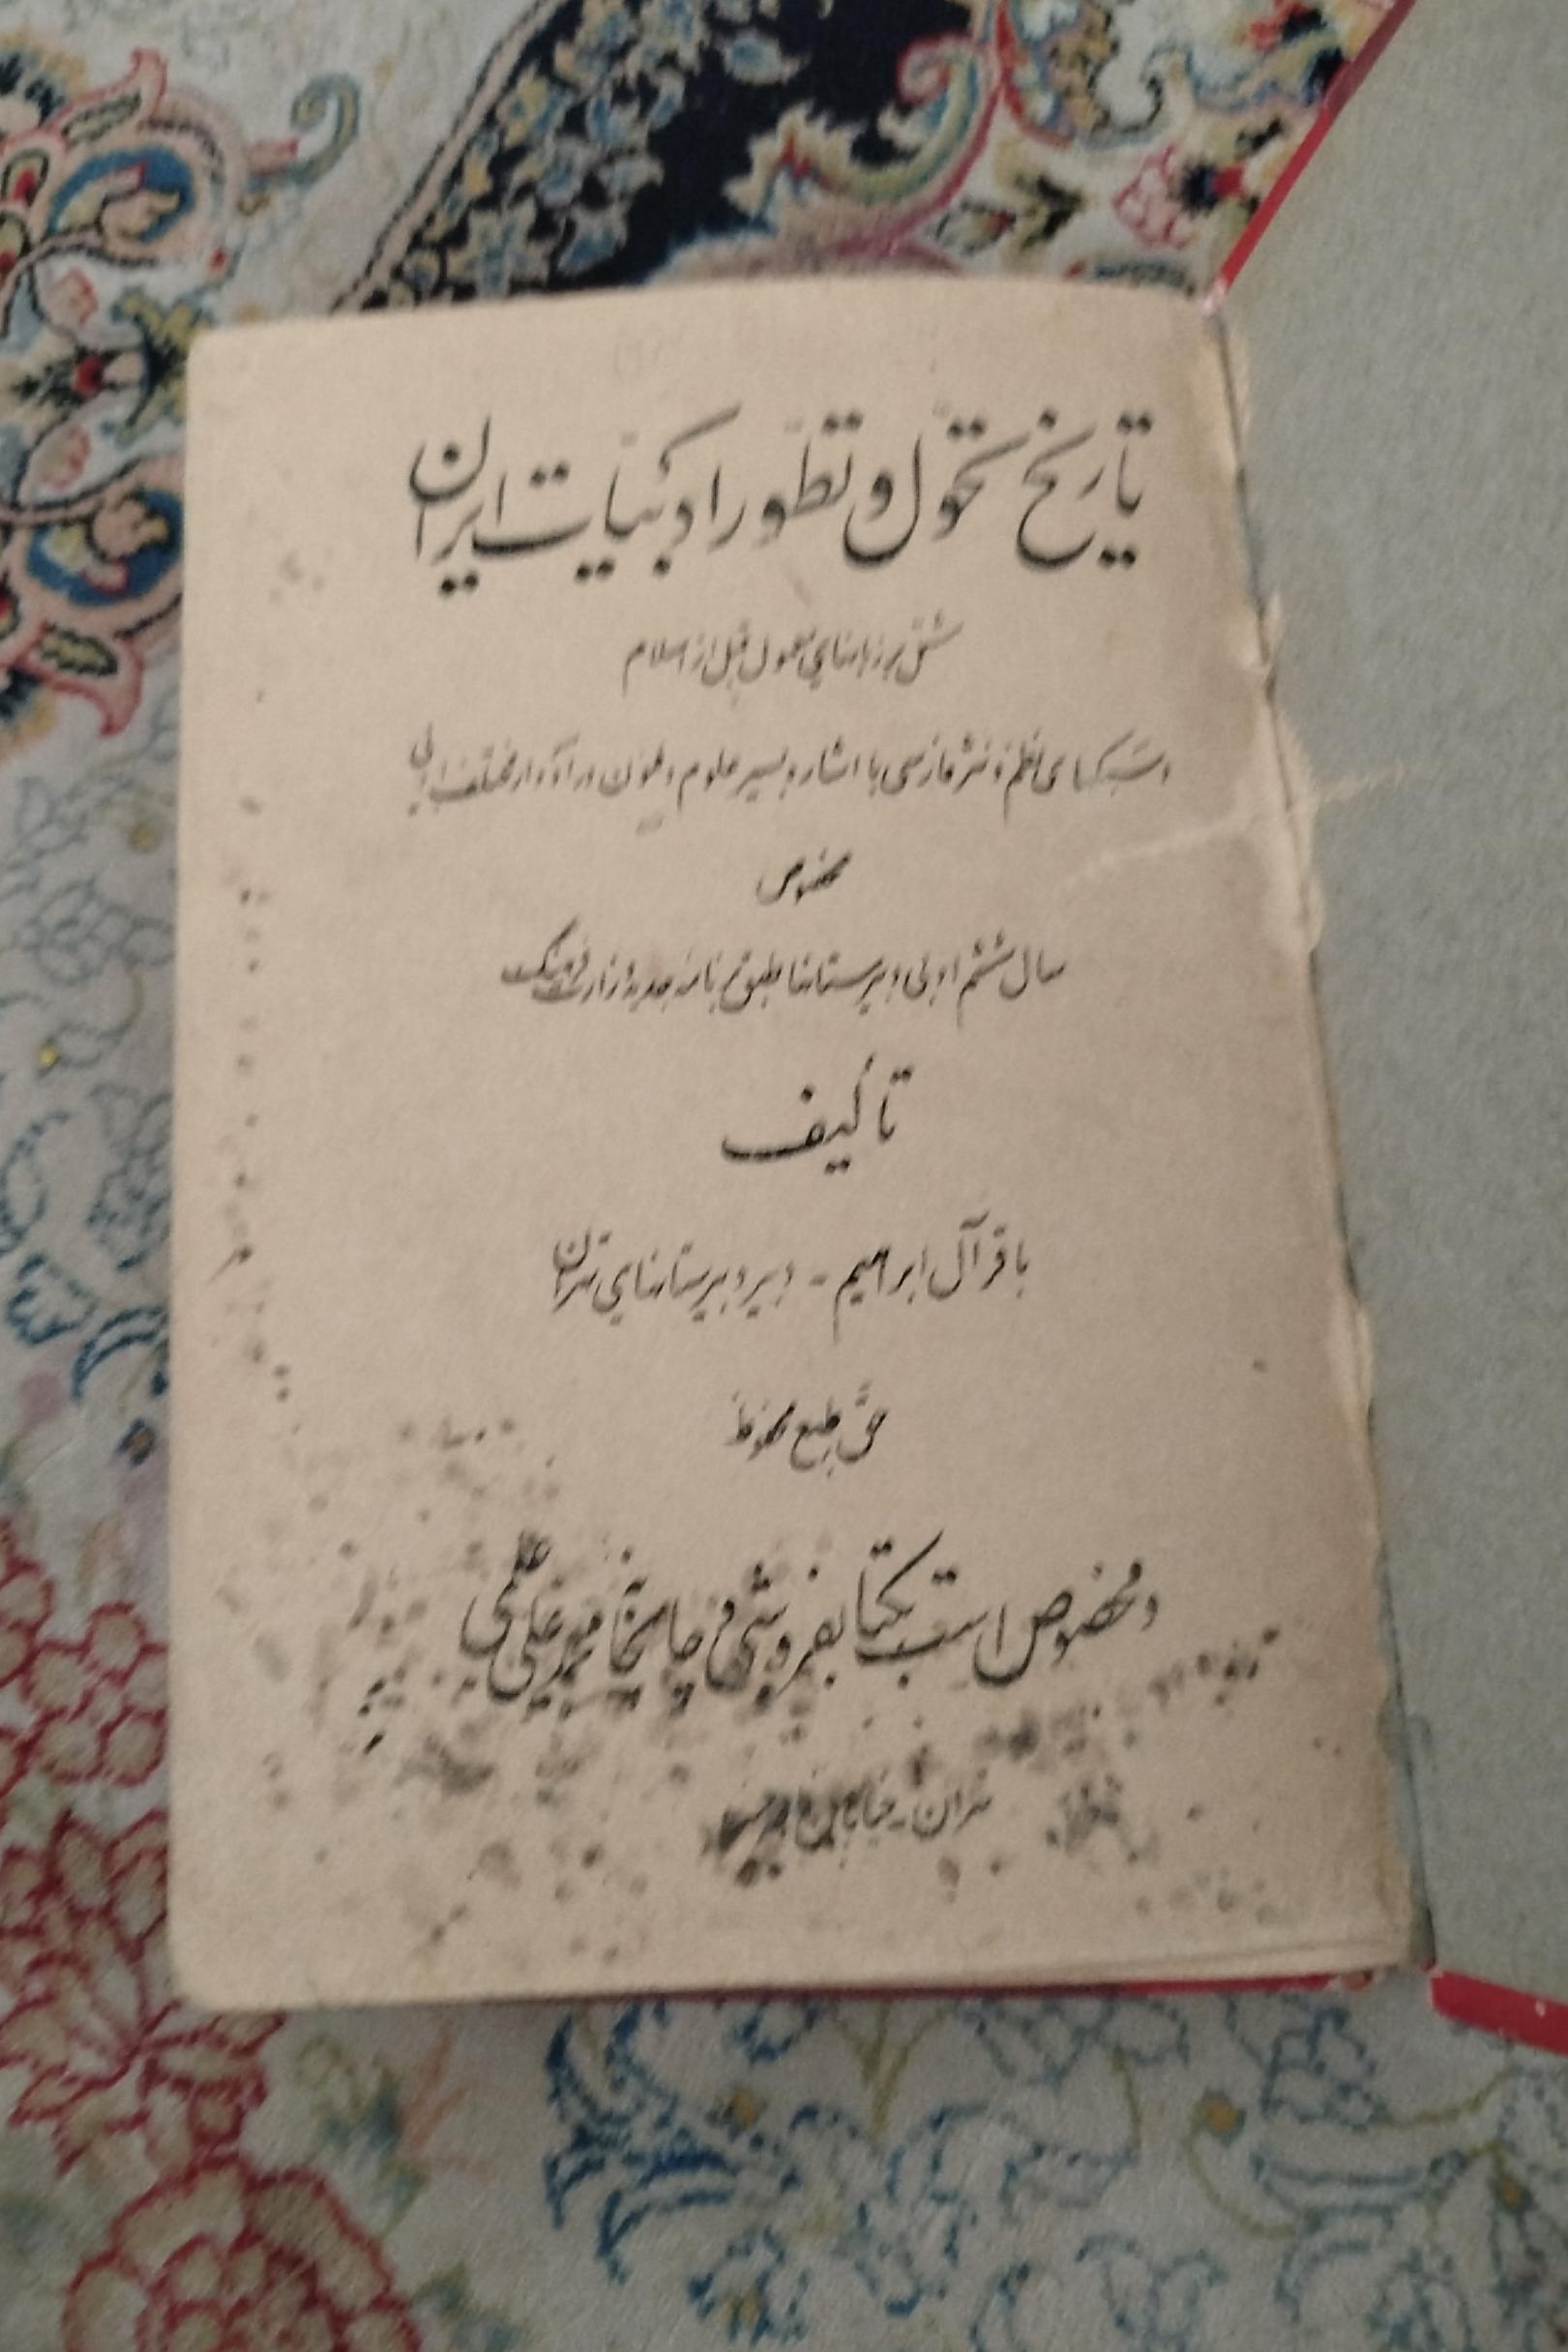 تاریخ تحول و تطور ادبیات ایران
مشتمل بر زبانهای معمول قبل از اسلام
و سبکهای نظم و نثر فارسی با اشاره بسیر علوم و فنون در ادوار مختلف ادبی
مخصوص
سال ششم ادبی دبیرستانها طبق برنامه جدید وزارت فرهنگ
تألیف
باقر آل ابراهیم - دبیر دبیرستانهای تهران
حق طبع محفوظ
و مخصوص است بکتابفروشی و چاپخانه محمد علی علمی
تهران - خیابان